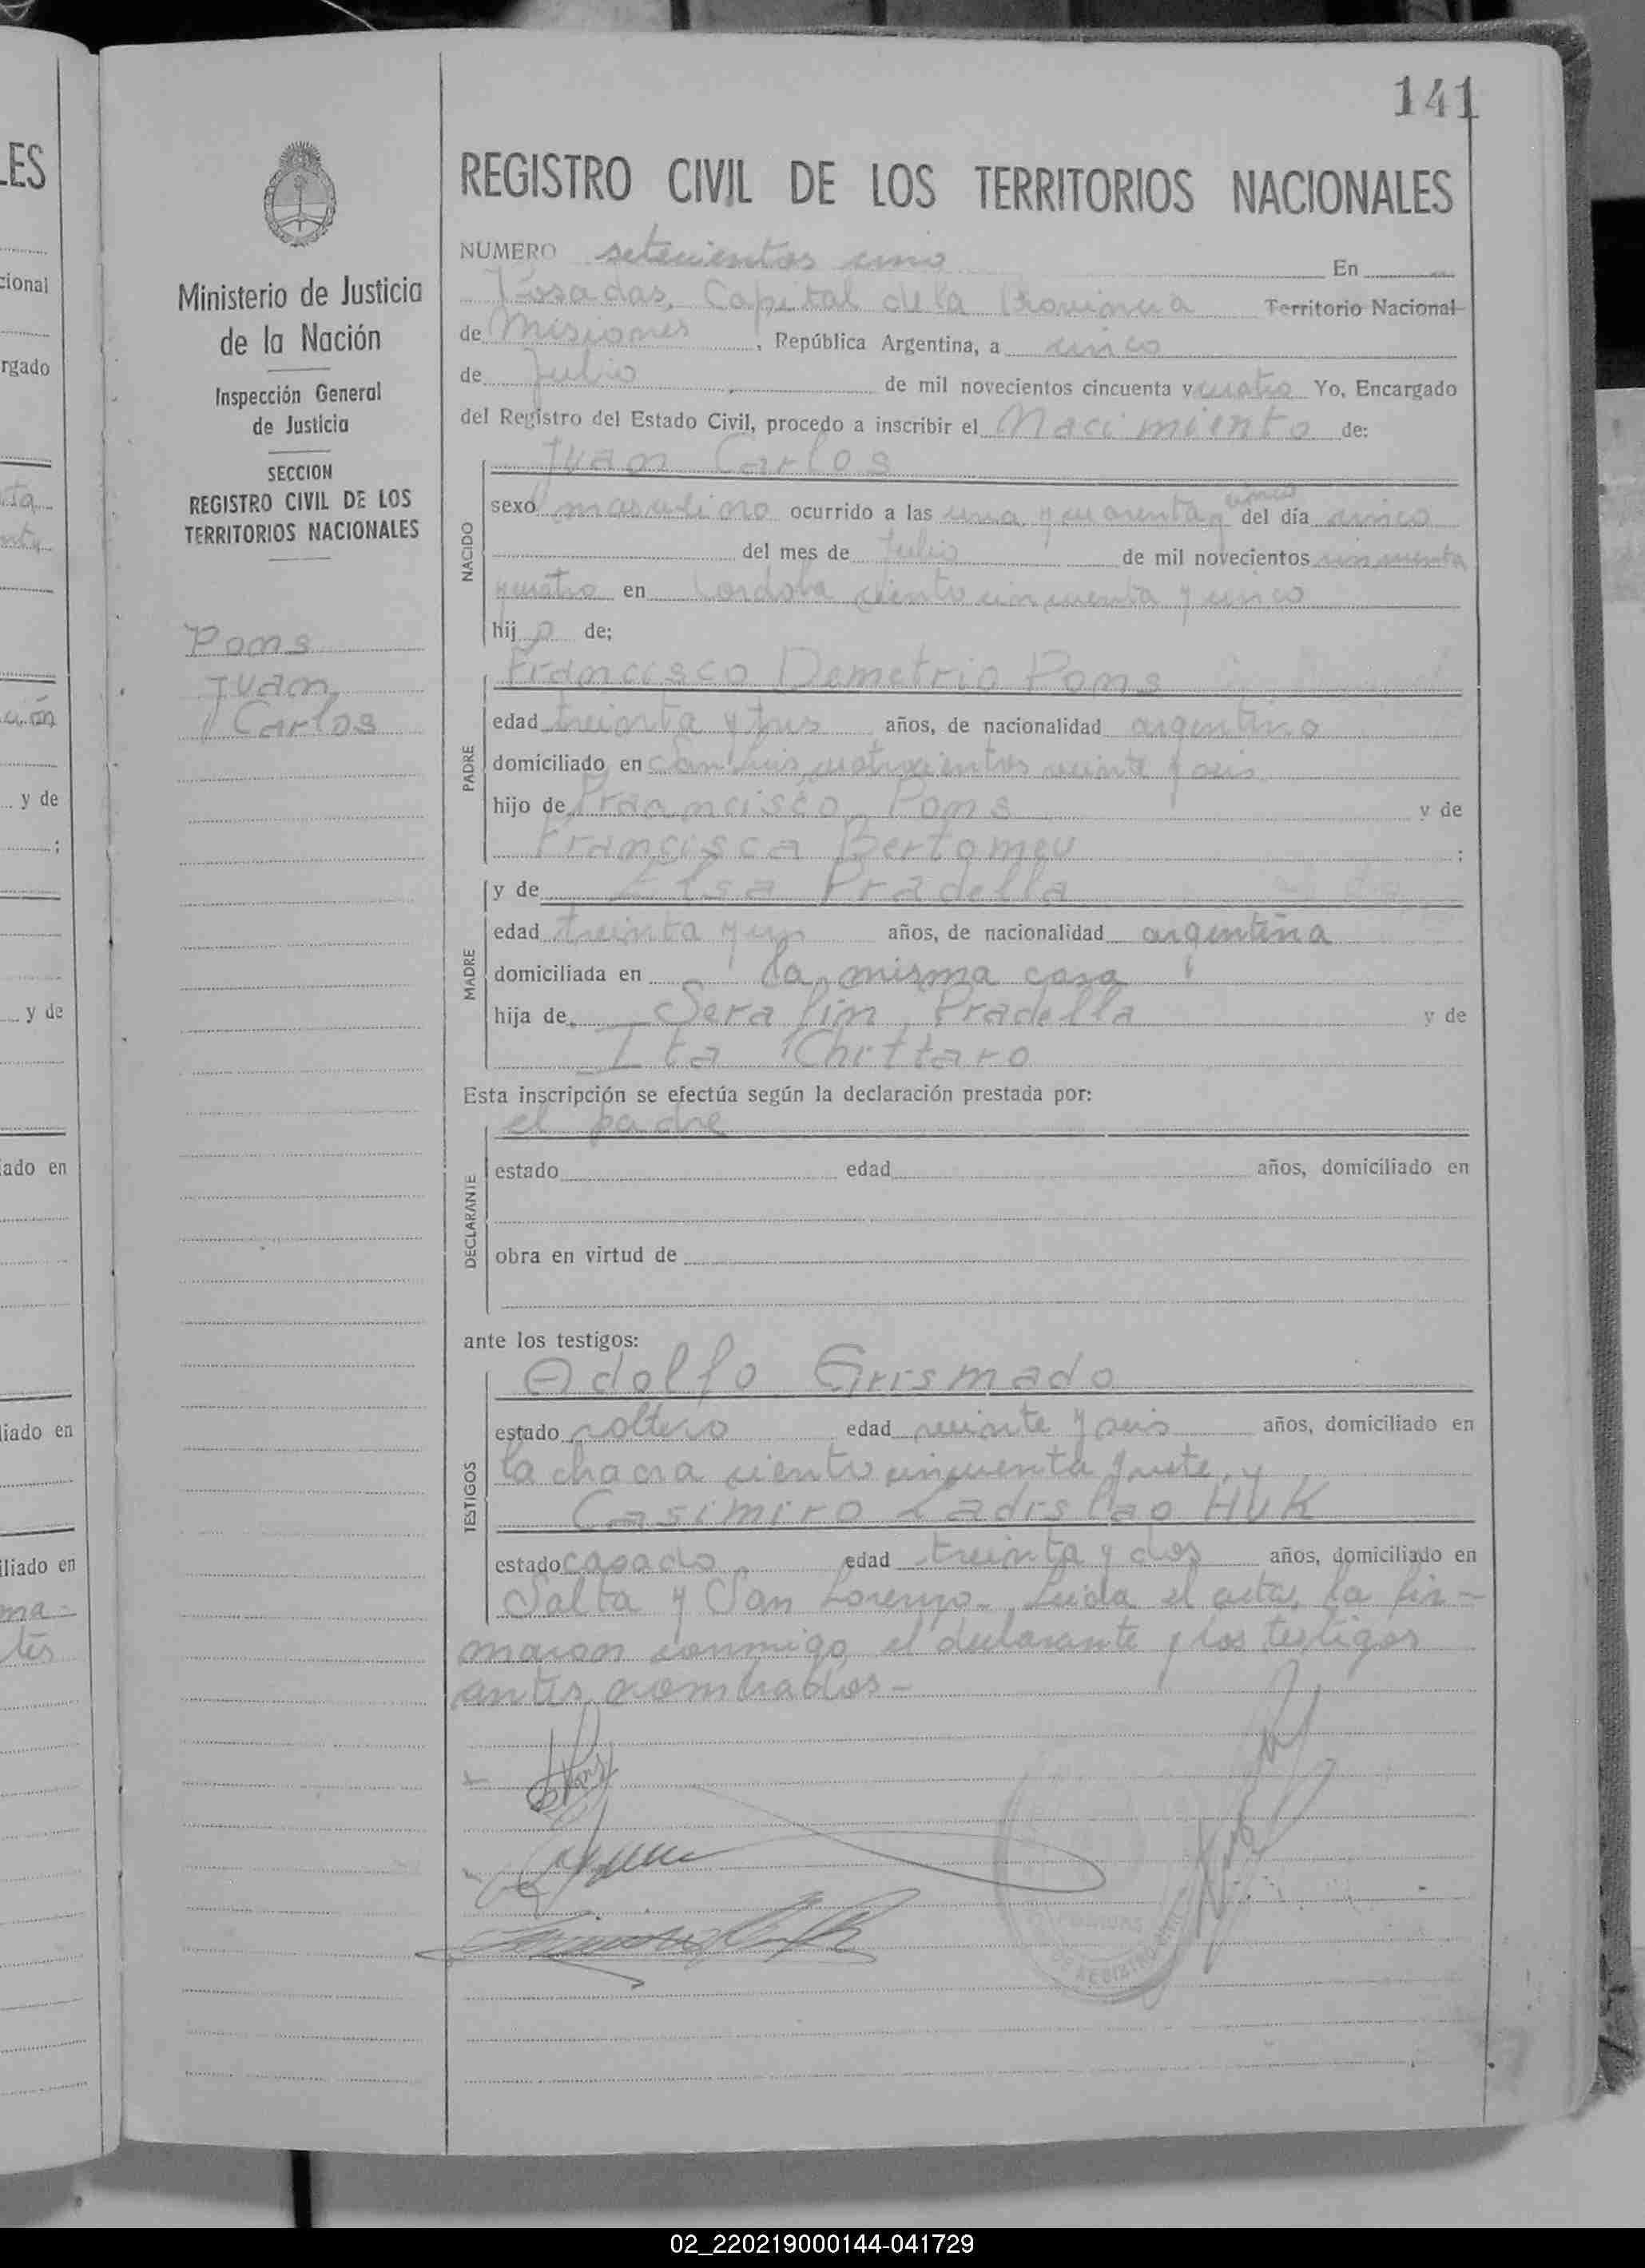 141
REGISTRO CIVIL DE LOS TERRITORIOS NACIONALES
NUMERO setecientos uno En
Posadas, Capital de la Provincia Territorio Nacional
de Misiones, República Argentina, a cinco
de Julio de mil novecientos cincuenta y cuatro Yo, Encargado
del Registro del Estado Civil, procedo a inscribir el Nacimiento de:
Juan Carlos
NACIDO
sexo masculino ocurrido a las una y cuarenta y cinco del día cinco
del mes de Julio de mil novecientos cincuenta
y cuatro en Cordoba ciento cincuenta y cinco
hijo de;
Francisco Demetrio Pons
PADRE
edad treinta y tres años, de nacionalidad argentino
domiciliado en San Luis, cuatrocientos veinte y seis
hijo de Francisco Pons y de
Francisca Bertomeu ;
y de Elsa Pradella
MADRE
edad treinta y un años, de nacionalidad argentina
domiciliada en la misma casa
hija de Serafin Pradella y de
Ita Chittaro
Esta inscripción se efectúa según la declaración prestada por:
el padre
DECLARANTE
estado edad años, domiciliado en
obra en virtud de
ante los testigos:
Adolfo Grismado
TESTIGOS
estado soltero edad veinte y seis años, domiciliado en
la chacra ciento cincuenta y siete, y
Casimiro Ladislao Huk
estado casado edad treinta y dos años, domiciliado en
Salta y San Lorenzo- Leida el acta, la fir-
maron conmigo, el declarante y los testigos
antes nombrados-
Ministerio de Justicia
de la Nación
Inspección General
de Justicia
SECCION
REGISTRO CIVIL DE LOS
TERRITORIOS NACIONALES
Pons
Juan
Carlos
LES
cional
rgado
y de
;
y de
iado en
liado en
iliado en
ma-
02_220219000144-041729